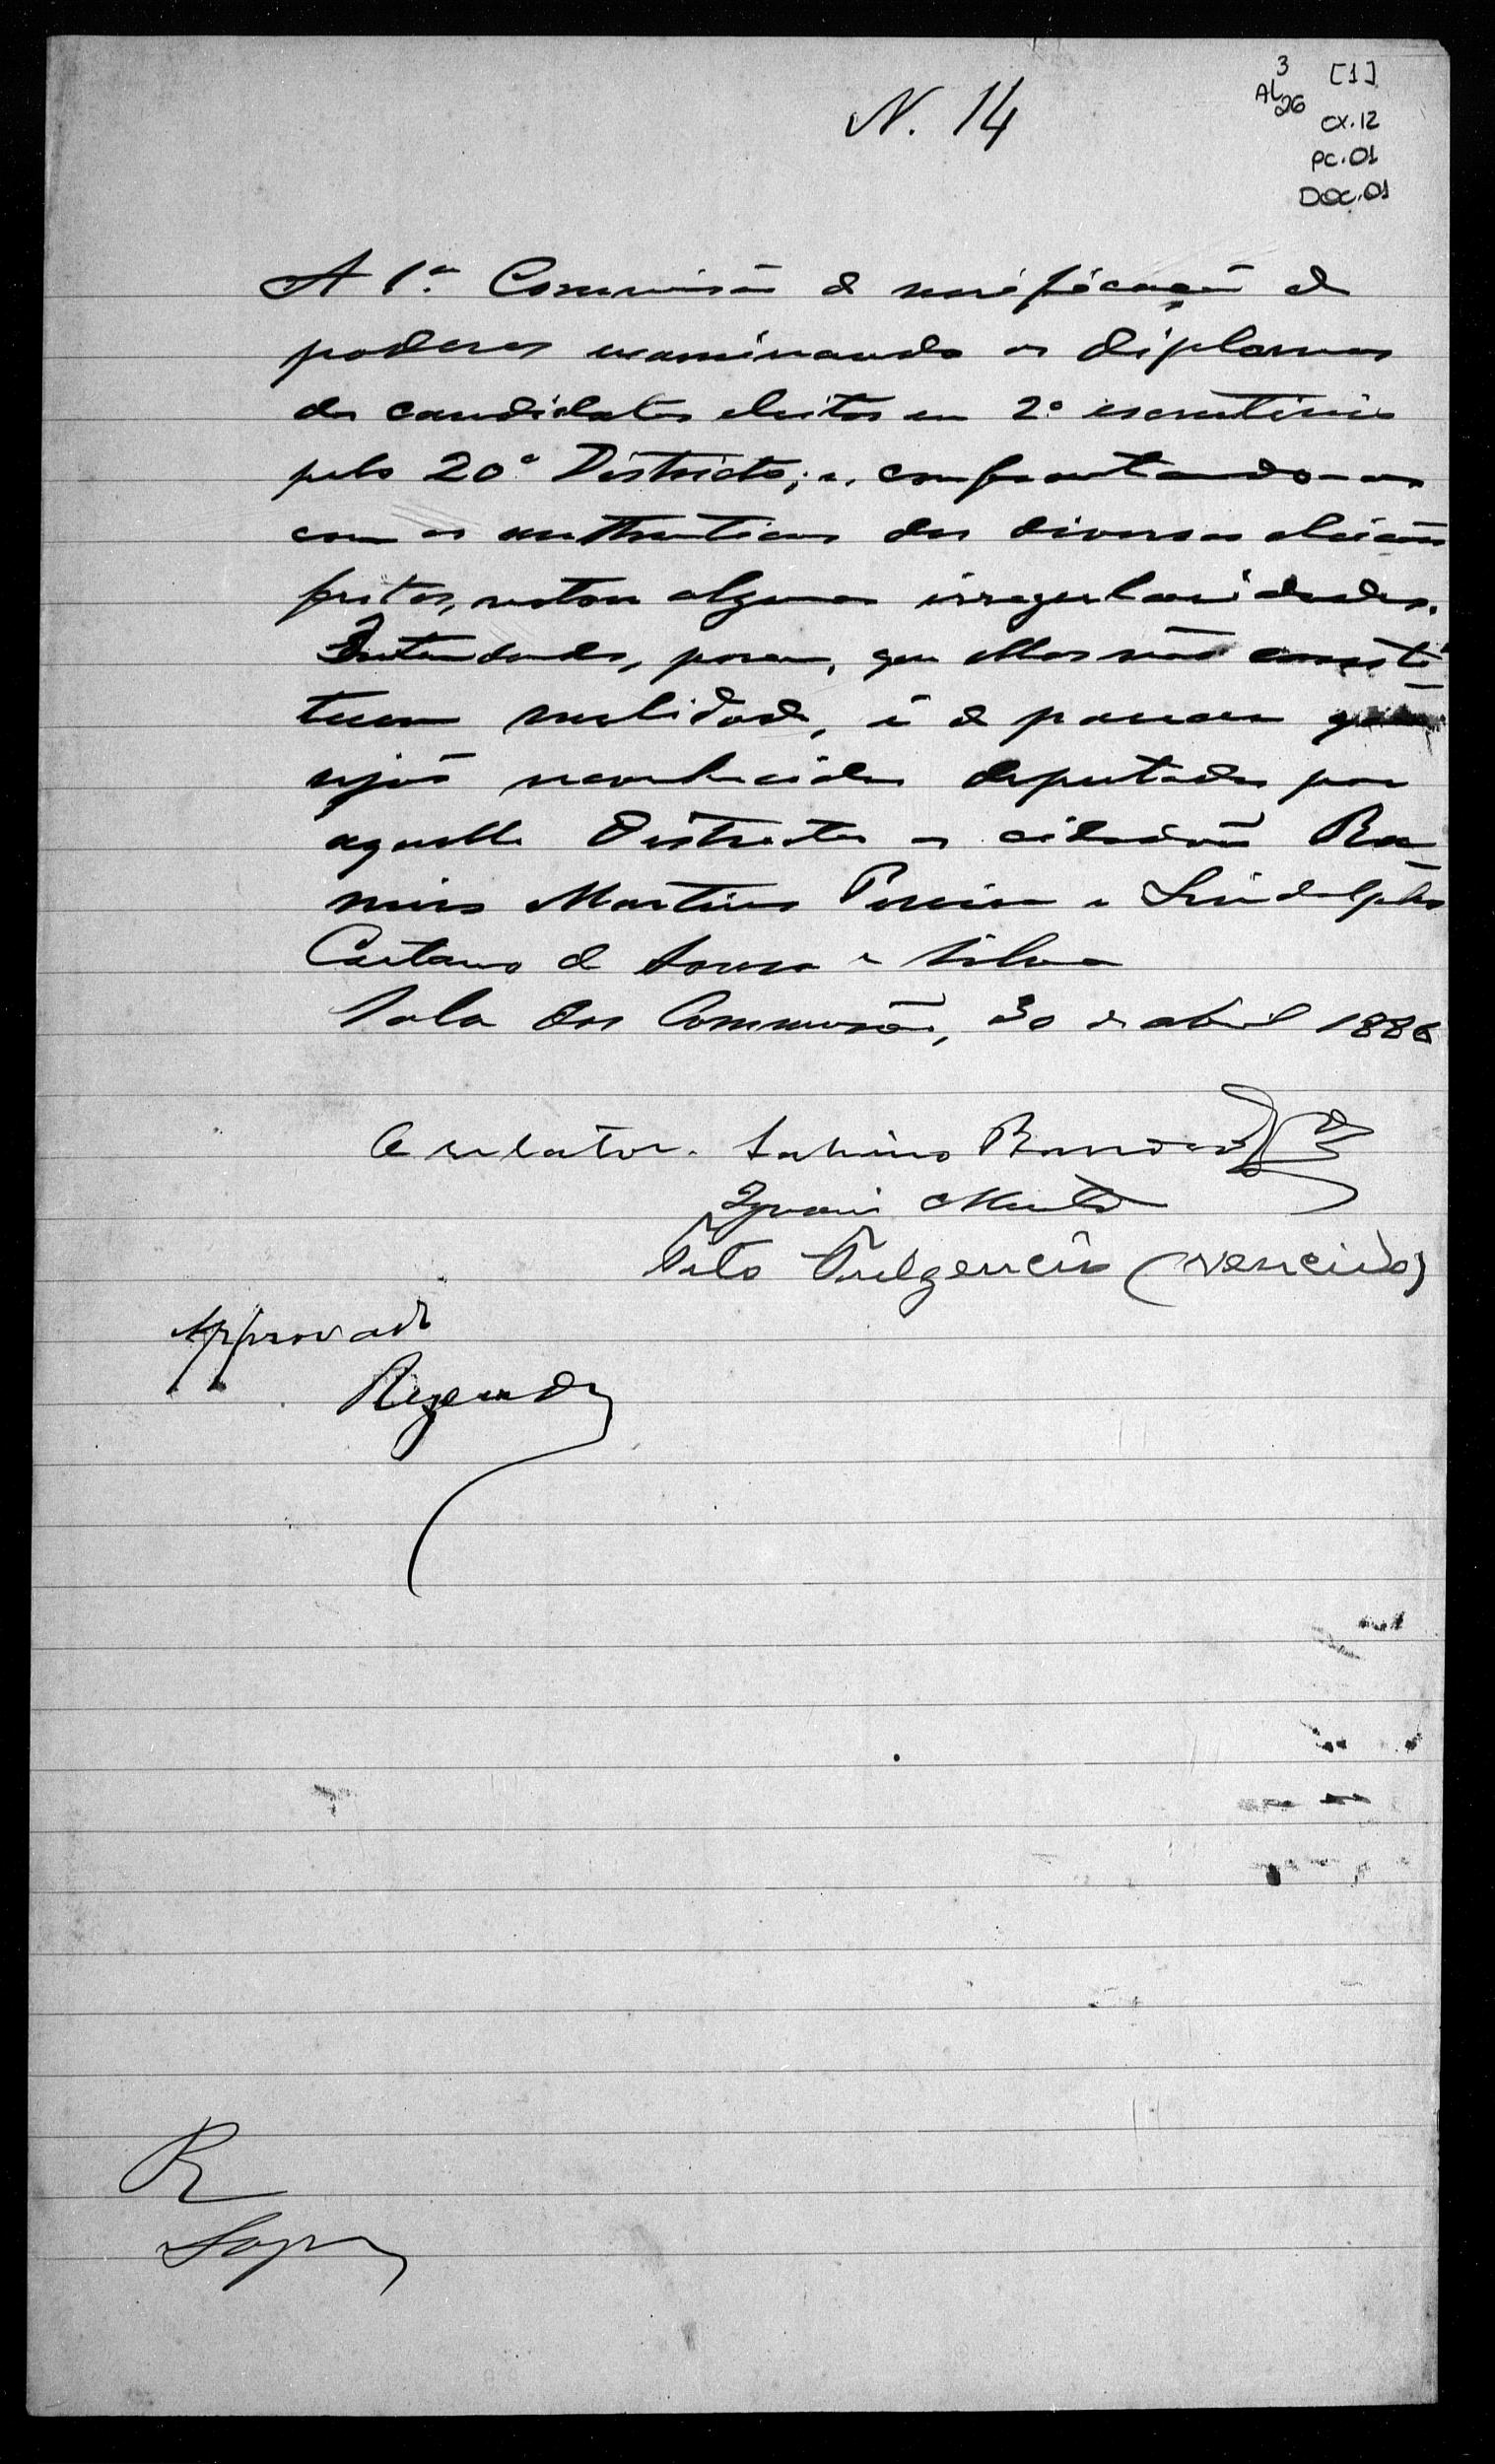 N. 14
3 [1]
AL 26
CX.12
PC.01
DOC.01
A 1ª Commissão de verificação de
poderes examinando os diplomas
dos candidatos eleitos em 2º escrutinio
pelo 20º Districto; e, confrontando-os
com as authenticas das diversas eleições
feitas, notou algumas irregularidades.
Entendendo, porem, que ellas não consti-
tuem nullidade, é de parecer que
sejão reconhecidos deputados por
aquelle Districto os cidadãos Ra-
miro Martins Pereira e Lindolpho
Caetano de Souza e Silva
Sala das Commissões, 30 de abril 1886
O relator. Sabino Barroso
Ignacio Murta
Tito Fulgencio (vencido)
Approvado
Rezende
R